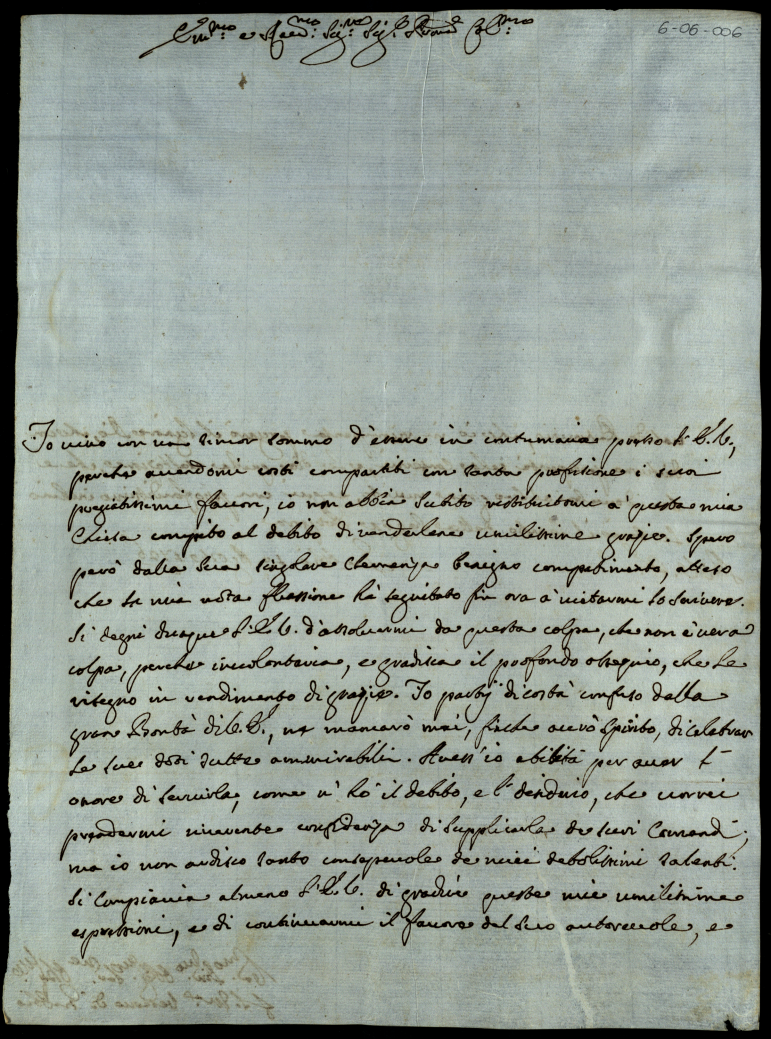 Em.mo e Rev.mo Sig.re Sig.r Pron.e Col.mo
6-06-006
Io vivo con un timor sommo d'essere in contumacia presso l'E.V.,
perche avendomi costì compartiti con tanta profusione i suoi
pregiatissimi favori, io non abbia subito restituitomi à questa mia
Chiesa compito al debito di renderlene umilissime grazie. Spero
però dalla sua singolare Clemenza benigno compatimento, atteso
che la mia nota flussione hà seguitato fin ora à vietarmi lo scrivere.
Si degni dunque l'E.V. d'assolvermi da questa colpa, che non è vera
colpa, perche involontaria, e gradisca il profondo ossequio, che Le
rassegno in rendimento di grazie. Io partij di costà confuso dalla
gran Bontà di V.E., ne mancarò mai, finche averò spirito, di celebrar
le sue doti tutte ammirabili. Avess'io abilità per aver l'
onore di servirla, come n'hò il debito, e l'desiderio, che vorrei
prendermi riverente confidenza di supplicarla de suoi Comandi;
ma io non ardisco tanto consapevole de miei debolissimi talenti.
Si compiaccia almeno l'E.V. di gradire queste mie umilissime
espressioni, e di continuarmi il favore del suo autorevole, e